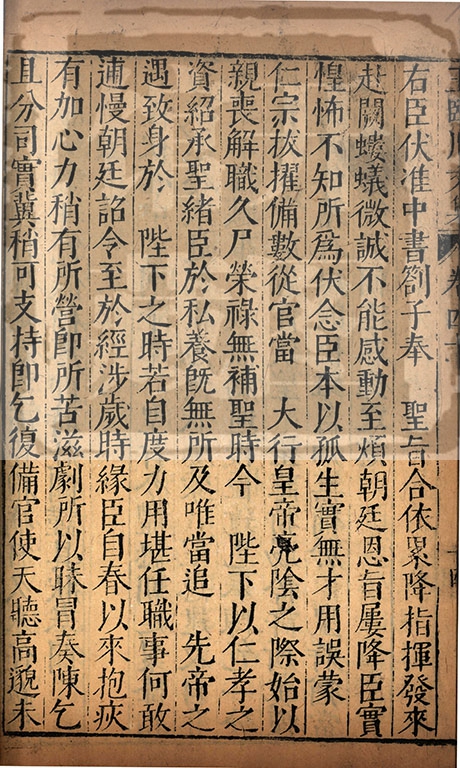 右臣伏准中書劄子奉　聖旨合依累降指揮發來
赴闕螻蟻微誠不能感動至煩朝廷恩旨屢降臣實
惶怖不知所爲伏念臣本以孤生實無才用誤蒙
仁宗拔擢備數從官當　大行皇帝亮陰之際始以
親喪解職久尸榮祿無補聖時今　陛下以仁孝之
資紹承聖緒臣於私養旣無所及唯當追　先帝之
遇致身於　陛下之時若自度力用堪任職事何敢
逋慢朝廷詔令至於經涉歲時緣臣自春以來抱疾
有加心力稍有所營卽所苦滋劇所以昧冒奏陳乞
且分司實冀稍可支持卽乞復備官使天聽高邈未